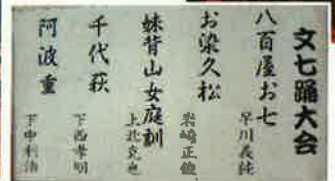 文七踊大会
八百屋お七
早川義純
お染久松
岩崎正俊
妹背山女庭訓
上北克也
千代萩
下西孝明
阿波重
下中利治